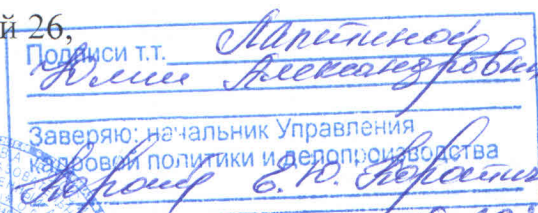 й 26,
Подписи т.т. Лаптиной
Юлии Александровны
Заверяю: начальник Управления
кадровой политики и делопроизводства
Е.Ю.